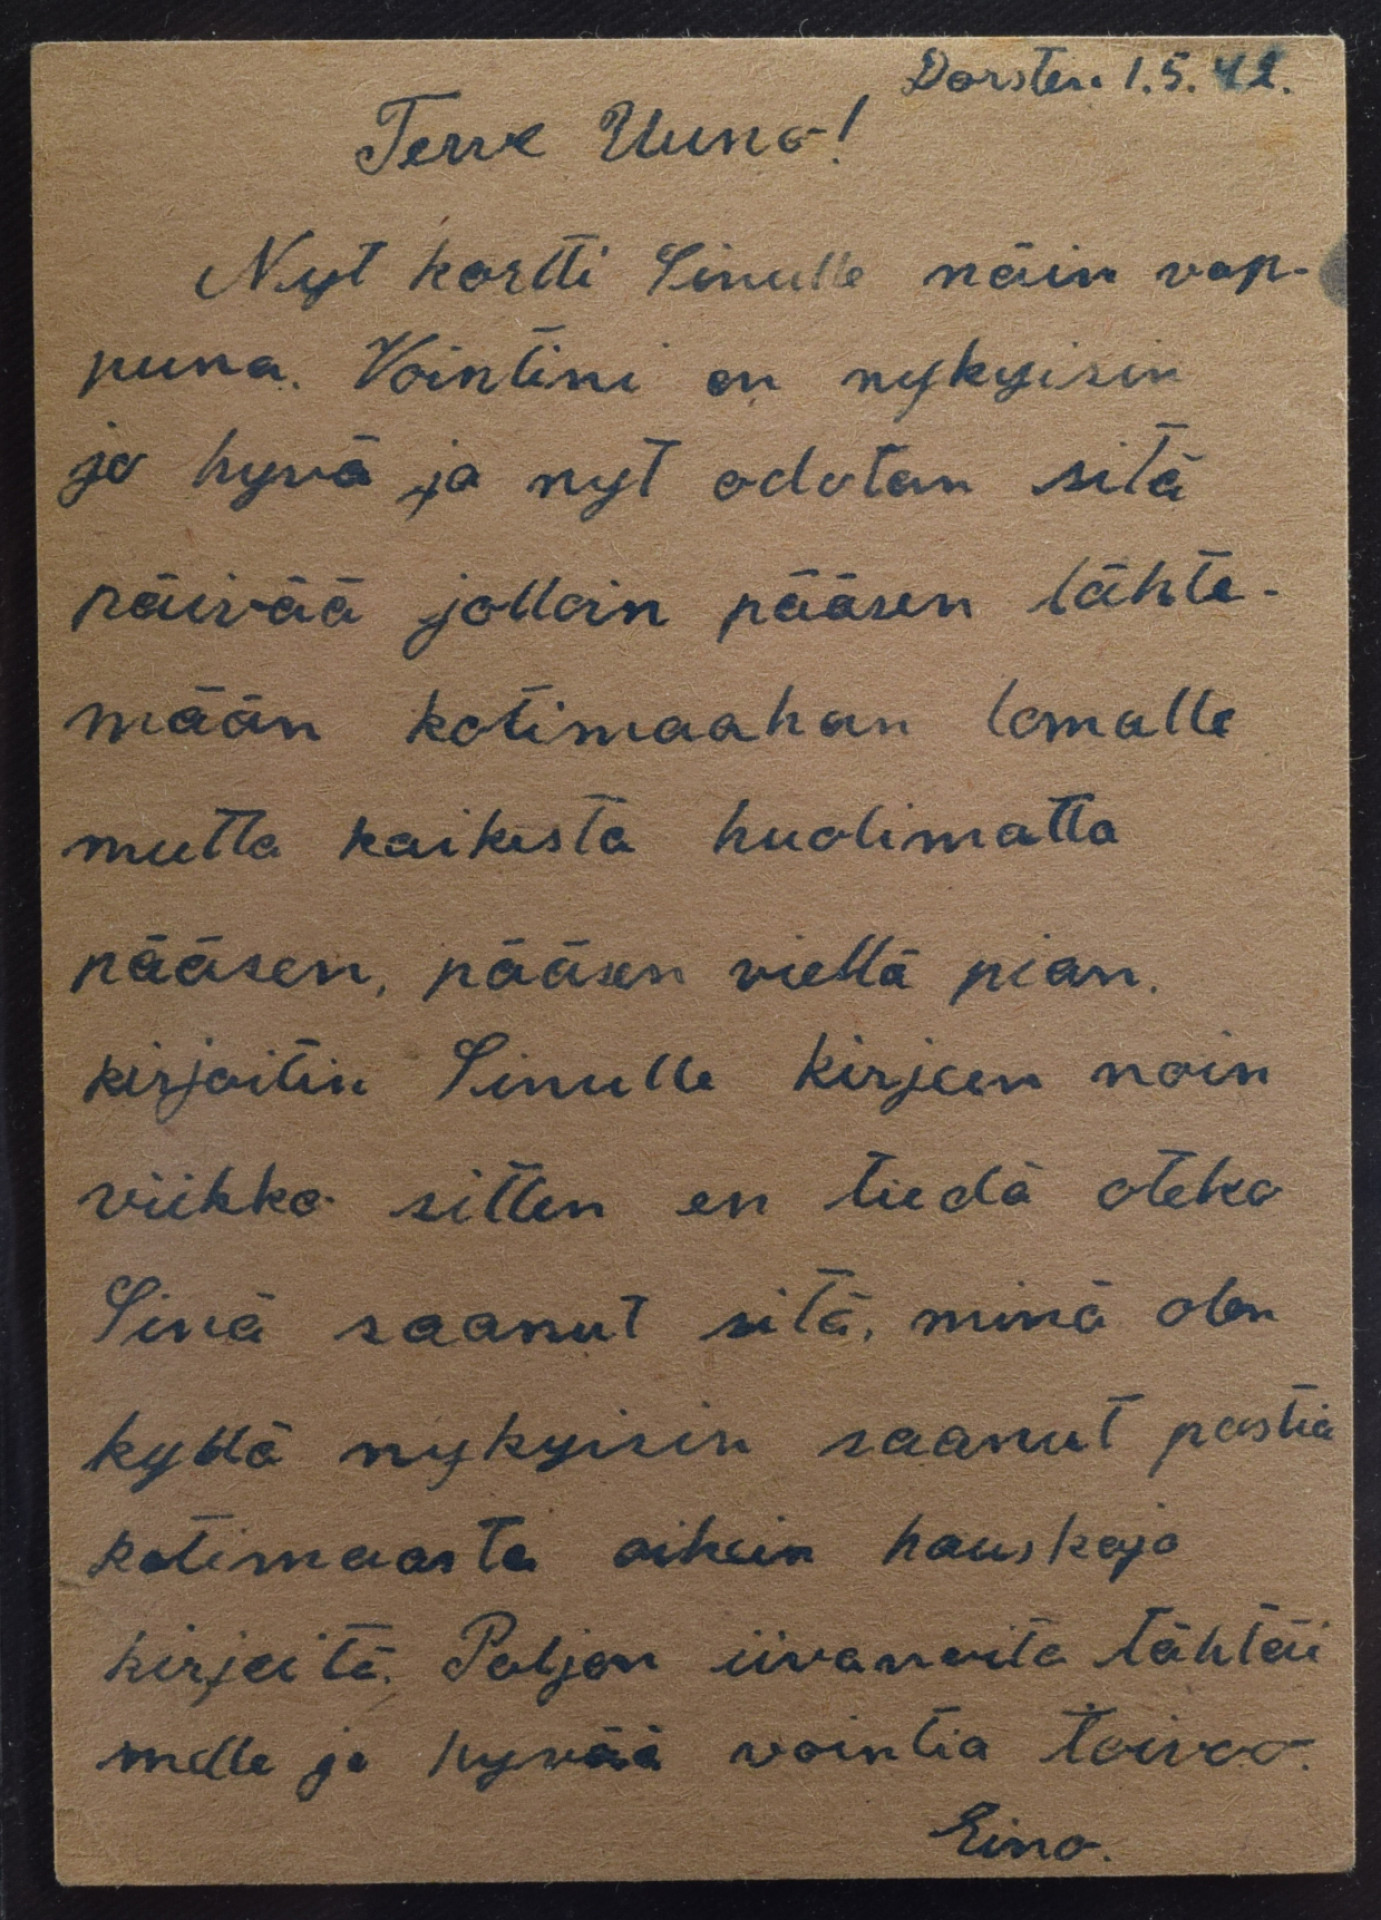 Dorsten 1.5.42.
Terve Uuno!
Nyt kortti Sinulle näin vap-
puna. Vointini on nykyisin
jo hyvä ja nyt odotan sitä
päivää jolloin pääsen lähte-
mään kotimaahan lomalle
mutta kaikesta huolimatta
pääsen, pääsen viellä pian.
kirjoitin Sinulle kirjeen noin
viikko sitten en tiedä oteko
Sinä saanut sitä, minä olen
kyllä nykyisin saanut postia
kotimaasta oikein hauskoja
kirjeitä. Paljon
melle ja hyvää vointia toivoo.
Eino.